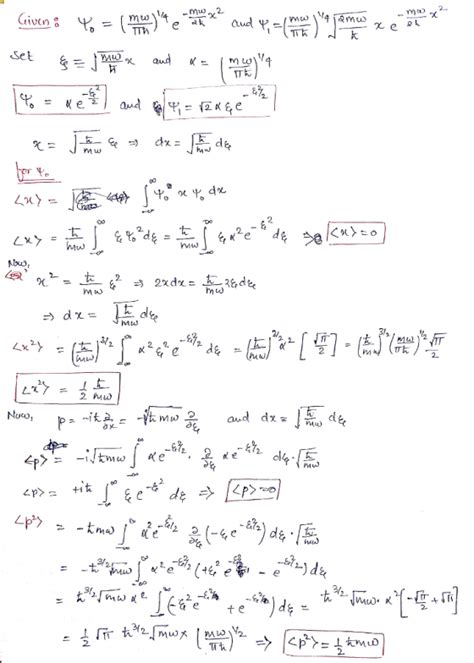 Given: Ψ₀ = (mω/πħ)^{1/4} e^{-mω/2ħ x²} and Ψ₁ = (mω/πħ)^{1/4} √(2mω/ħ) x e^{-mω/2ħ x²}
Set ξ ≡ √(mω/ħ) x and α = (mω/πħ)^{1/4}
Ψ₀ = α e^{-ξ²/2} and Ψ₁ = √2 α ξ e^{-ξ²/2}
x = √(ħ/mω) ξ ⇒ dx = √(ħ/mω) dξ
for Ψ₀
⟨x⟩ = ∫_{-∞}^{∞} Ψ₀* x Ψ₀ dx
⟨x⟩ = ħ/mω ∫_{-∞}^{∞} ξ Ψ₀² dξ = ħ/mω ∫_{-∞}^{∞} ξ α² e^{-ξ²} dξ ⇒ ⟨x⟩ = 0
Now,
x² = ħ/mω ξ² ⇒ 2x dx = ħ/mω 2ξ dξ
⇒ dx = √(ħ/mω) dξ
⟨x²⟩ = (ħ/mω)^{3/2} ∫_{-∞}^{∞} α² ξ² e^{-ξ²/2} dξ = (ħ/mω)^{3/2} α² [√π/2] = (ħ/mω)^{3/2} (mω/πħ)^{1/2} √π/2
⟨x²⟩ = 1/2 ħ/mω
Now, p = -iħ ∂/∂x = -i√(ħmω) ∂/∂ξ and dx = √(ħ/mω) dξ
⟨p⟩ = -i√(ħmω) ∫_{-∞}^{∞} α e^{-ξ²/2} · ∂/∂ξ α e^{-ξ²/2} dξ · √(ħ/mω)
⟨p⟩ = +iħ ∫_{-∞}^{∞} ξ e^{-ξ²} dξ ⇒ ⟨p⟩ = 0
⟨p²⟩ = -ħmω ∫_{-∞}^{∞} α² e^{-ξ²/2} ∂/∂ξ (-ξ e^{-ξ²/2}) dξ · √(ħ/mω)
= -ħ^{3/2} √mω ∫_{-∞}^{∞} α² e^{-ξ²/2} (+ξ² e^{-ξ²/2} - e^{-ξ²/2}) dξ
= ħ^{3/2} √mω α² ∫_{-∞}^{∞} (-ξ² e^{-ξ²} + e^{-ξ²}) dξ = ħ^{3/2} √mω · α² [-√π/2 + √π]
= 1/2 √π ħ^{3/2} √mω × (mω/πħ)^{1/2} ⇒ ⟨p²⟩ = 1/2 ħmω